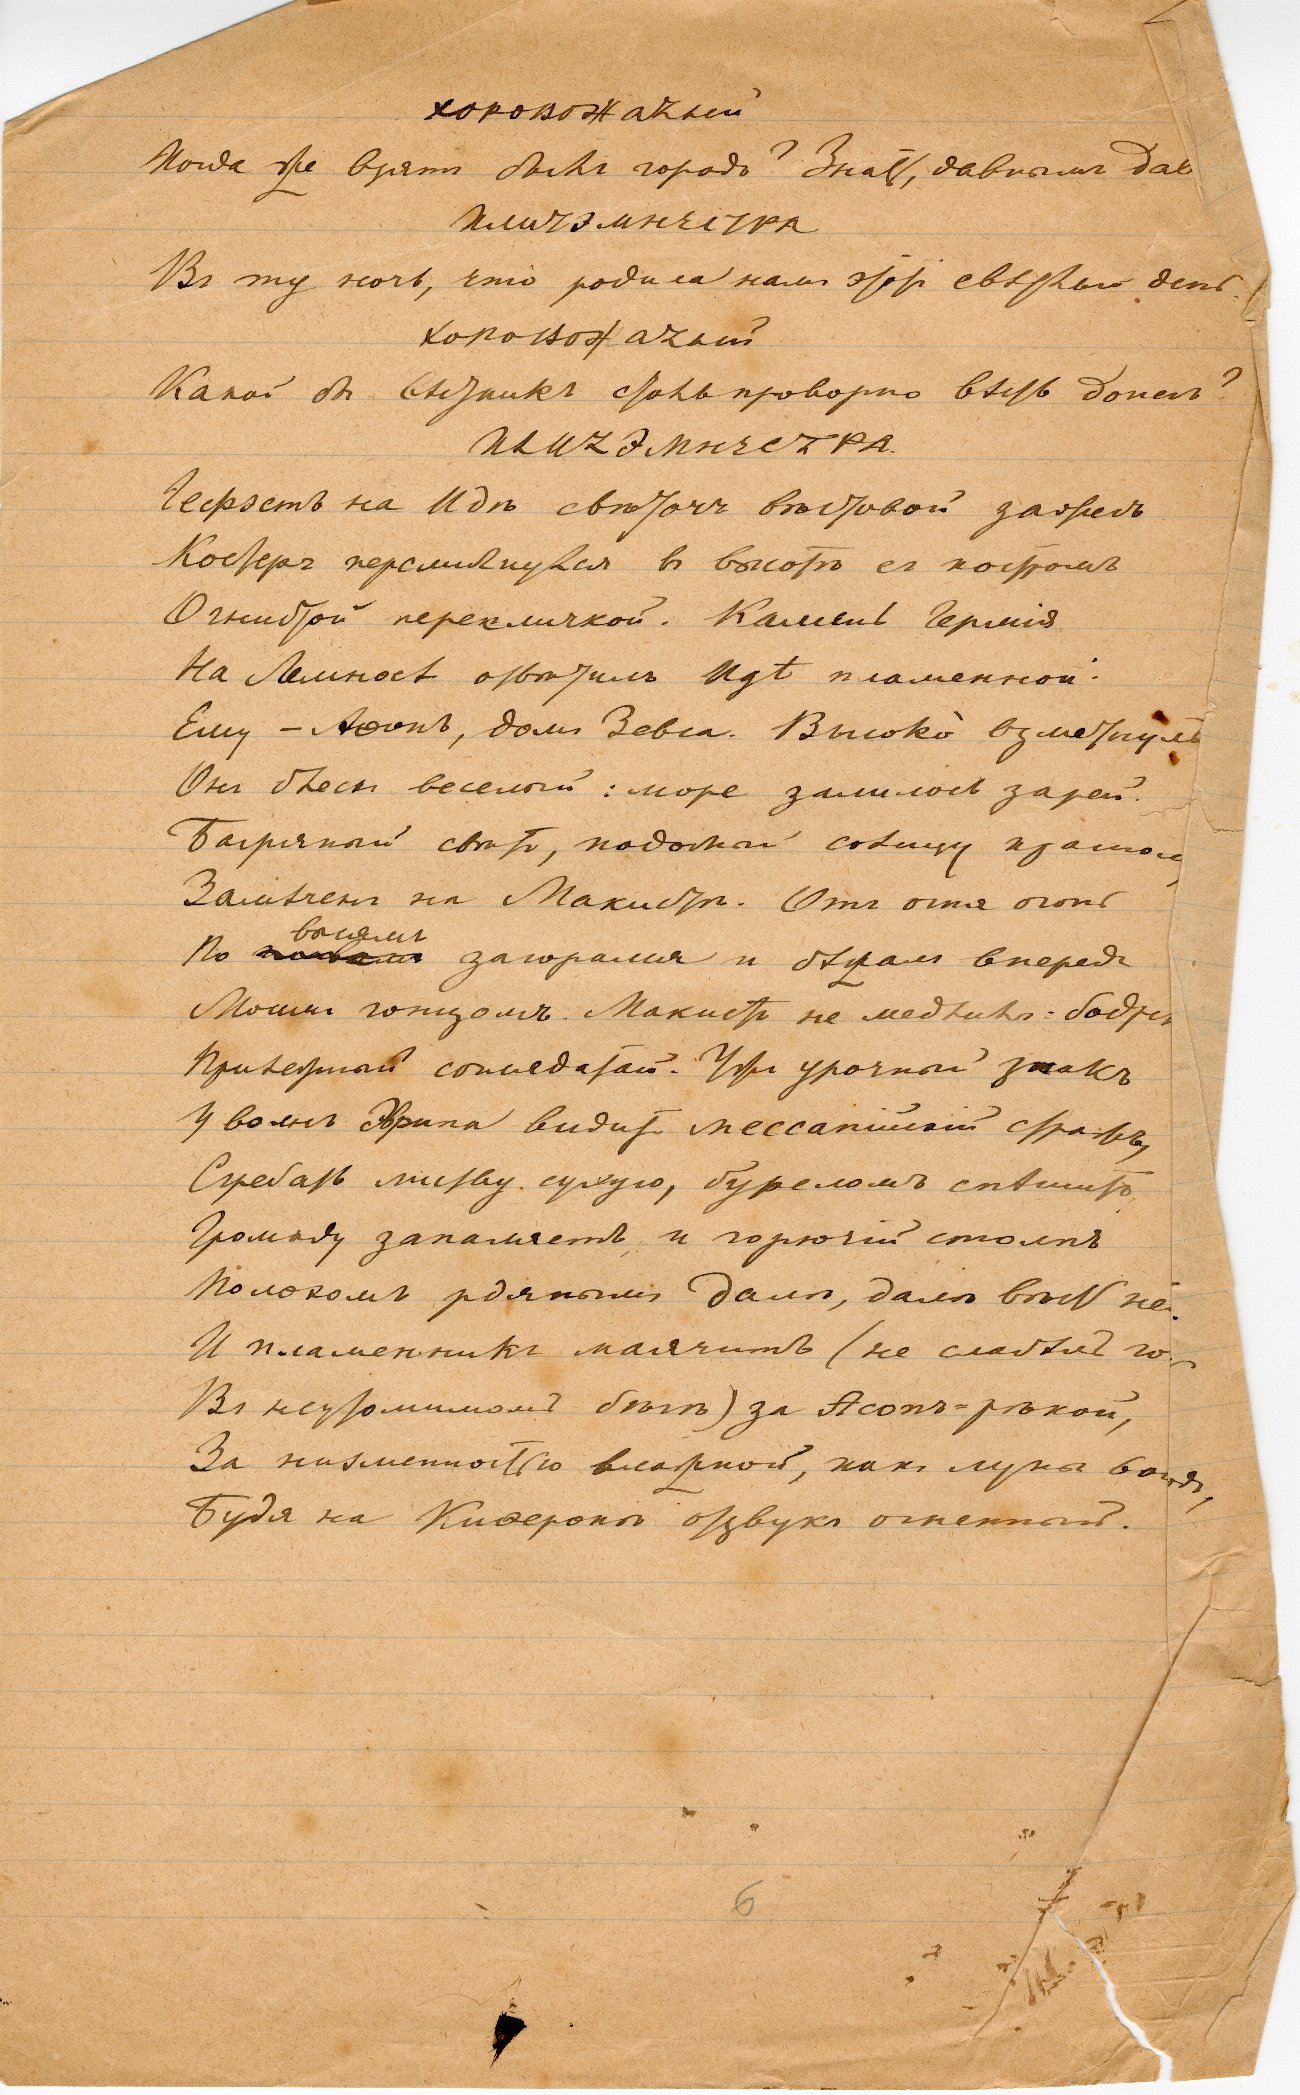 ХОРОВОЖАТЫЙ
Когда же взятъ былъ городъ? Знать, давнымъ дав
КЛИТЭМНЕСТРА
Въ ту ночь, что родила намъ этотъ свѣтлый день.
ХОРОВОЖАТЫЙ
Какой бы вѣстникъ столь проворно вѣсть донесъ?
КЛИТЭМНЕСТРА
Гефэстъ на Идѣ свѣточъ вѣстовой зажегъ
Костеръ перемигнулся въ высотѣ съ костромъ
Огнистой перекличкой. Камень Гермія
На Лемносѣ отвѣтилъ Идѣ пламенной.
Ему – Аѳонъ, домъ Зевса. Высоко взметнулъ
Онъ блескъ веселый: море залилось зарей.
Багряный свѣтъ, подобный солнцу
Замѣченъ на Макистѣ. Отъ огня огонь
По высямъ загорался и бѣжалъ впередъ
Мощнымъ гонцомъ. Макистъ не медлилъ: бодръ
Привѣтный соглядатай. Ужъ урочный знакъ
У волнъ Эврипа видитъ мессапійскій стражъ,
Сгребаетъ листву сухую, буреломъ спѣшитъ,
Громаду запаляетъ, и горючій столпъ
Пологомъ рдянымъ далѣ, далѣ вѣсть не
И пламенникъ маячитъ (не слабѣлъ го
Въ неутомимомъ бѣгѣ) за Асопъ-рѣкой,
За низменностью влажной, какъ луна
Будя на Киѳеронѣ отзвукъ огненный.
6